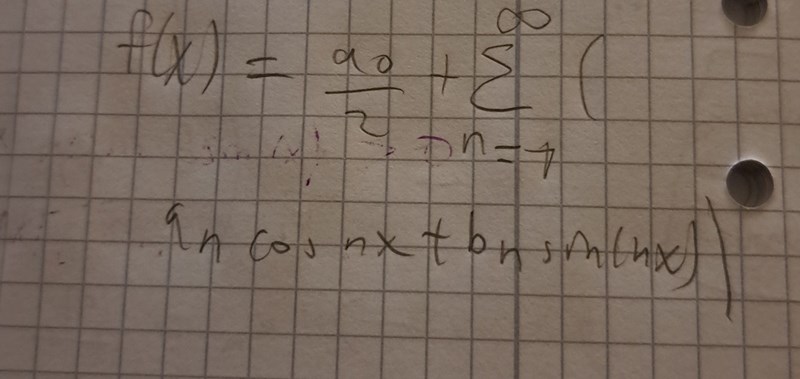 f(x) = a0/2 + ∑ n=1 ∞ (
an cos nx + bn sin(nx))